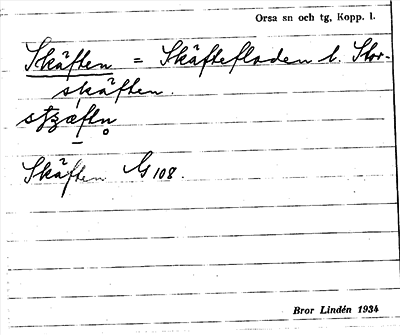 Orsa sn och tg, Kopp. l.
Skäften = Skäftefloden l. Stor-
skäften.
Skäften G 108.
Bror Lindén 1934